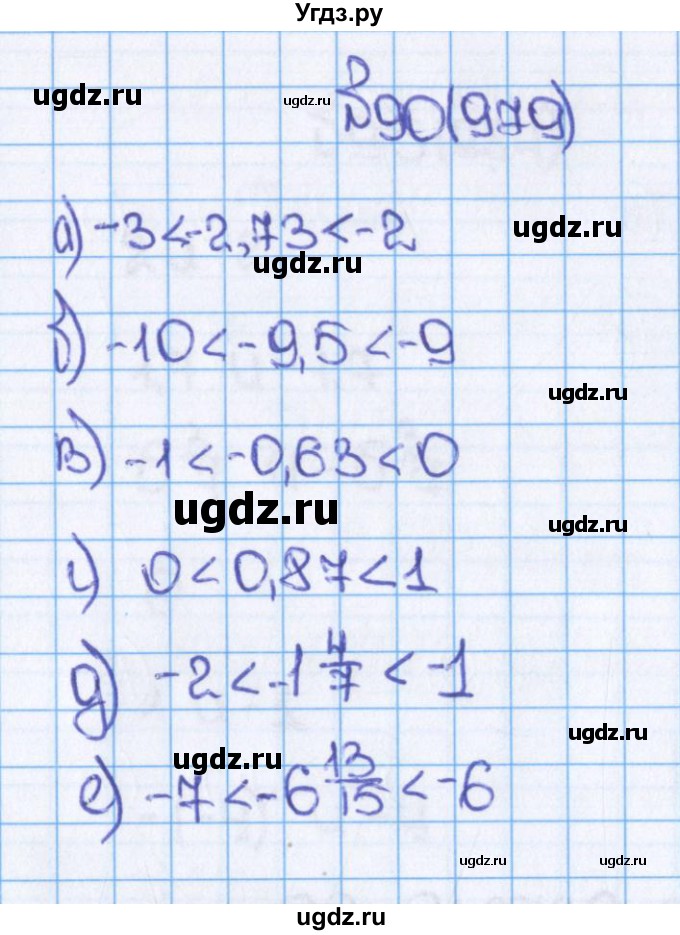 Угдз.ру
ugdz.ru
ugdz.ru
№90(979)
а) -3<-2,73<-2
ugdz.ru
ugdz.ru
б) -10<-9,5<-9
ugdz.ru
в) -1<-0,63<0
ugdz.ru
ugdz.ru
г) 0<0,87<1
д) -2<-1 4/7<-1
ugdz.ru
ugdz.ru
е) -7<-6 13/15<-6
ugdz.ru
ugdz.ru
ugdz.ru